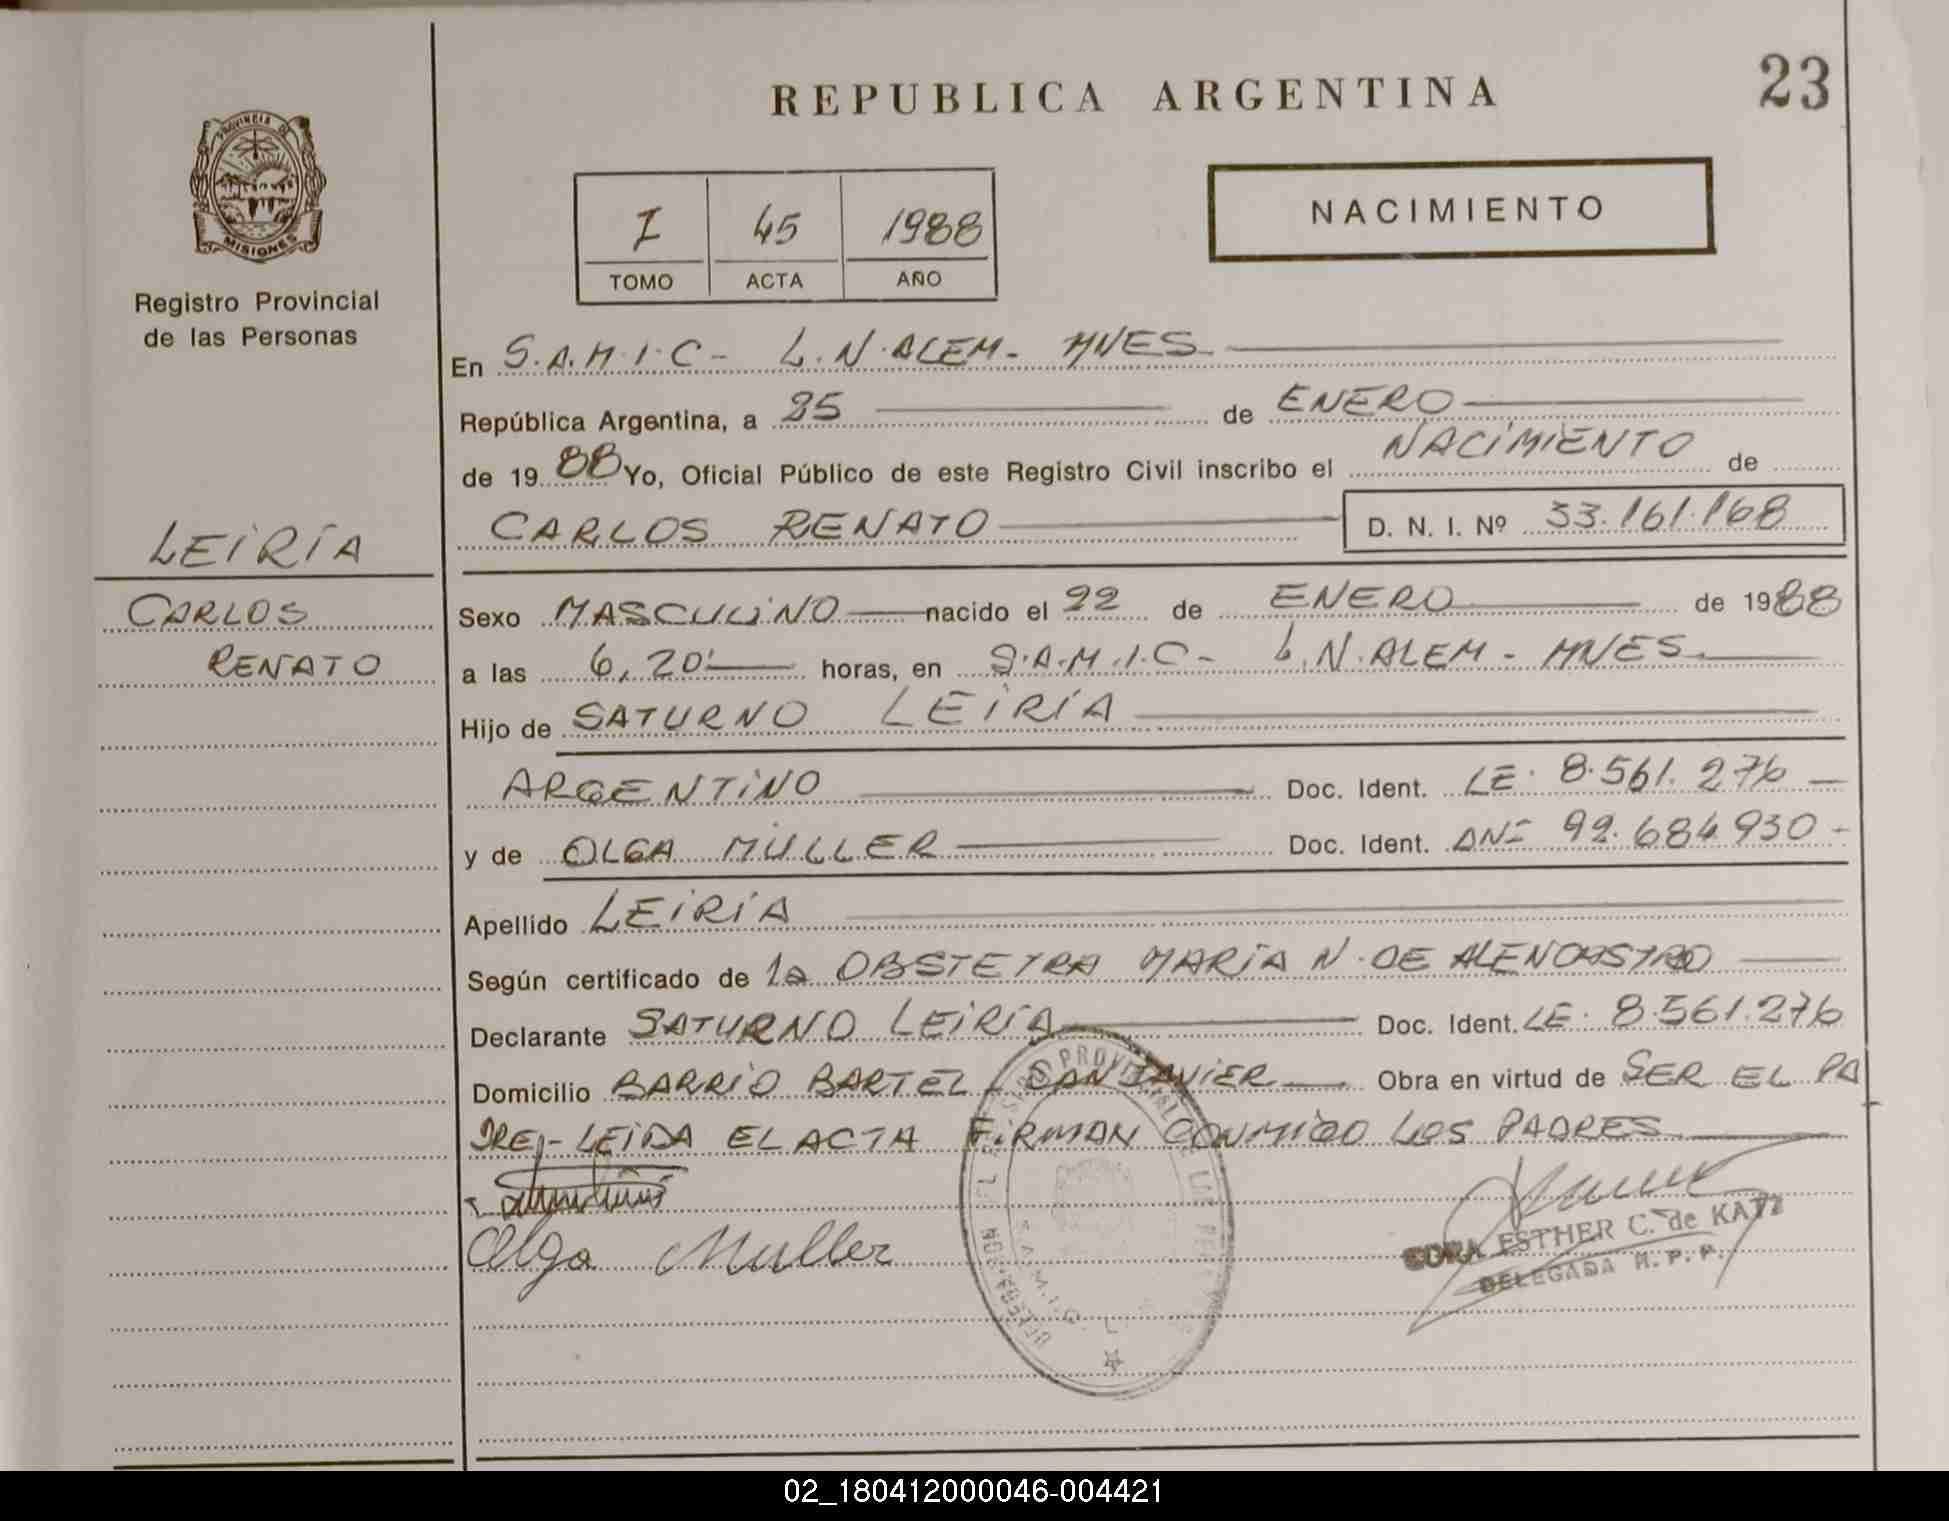 REPUBLICA ARGENTINA
23
PROVINCIA DE
MISIONES
Registro Provincial
de las Personas
I 45 1988
TOMO ACTA AÑO
NACIMIENTO
En S.A.M.I.C- L.N.ALEM- MNES
República Argentina, a 25 de ENERO
de 1988 Yo, Oficial Público de este Registro Civil inscribo el NACIMIENTO de
CARLOS RENATO D. N. I. Nº 33.161.168
LEIRÍA
CARLOS
RENATO
Sexo MASCULINO nacido el 22 de ENERO de 1988
a las 6,20' horas, en S.A.M.I.C- L.N.ALEM- MNES
Hijo de SATURNO LEIRÍA
ARGENTINO Doc. Ident. LE. 8.561.276
y de OLGA MULLER Doc. Ident. DNI 92.684.930-
Apellido LEIRÍA
Según certificado de la OBSTETRA MARÍA N. DE ALENCASTRO
Declarante SATURNO LEIRÍA Doc. Ident. LE. 8.561.276
Domicilio BARRIO BARTEL - SAN JAVIER Obra en virtud de SER EL PA
DRE,- LEIDA EL ACTA FIRMAN CONMIGO LOS PADRES
Olga Muller
ESTHER C. de KATZ
DELEGADA R.P.P.
02_180412000046-004421